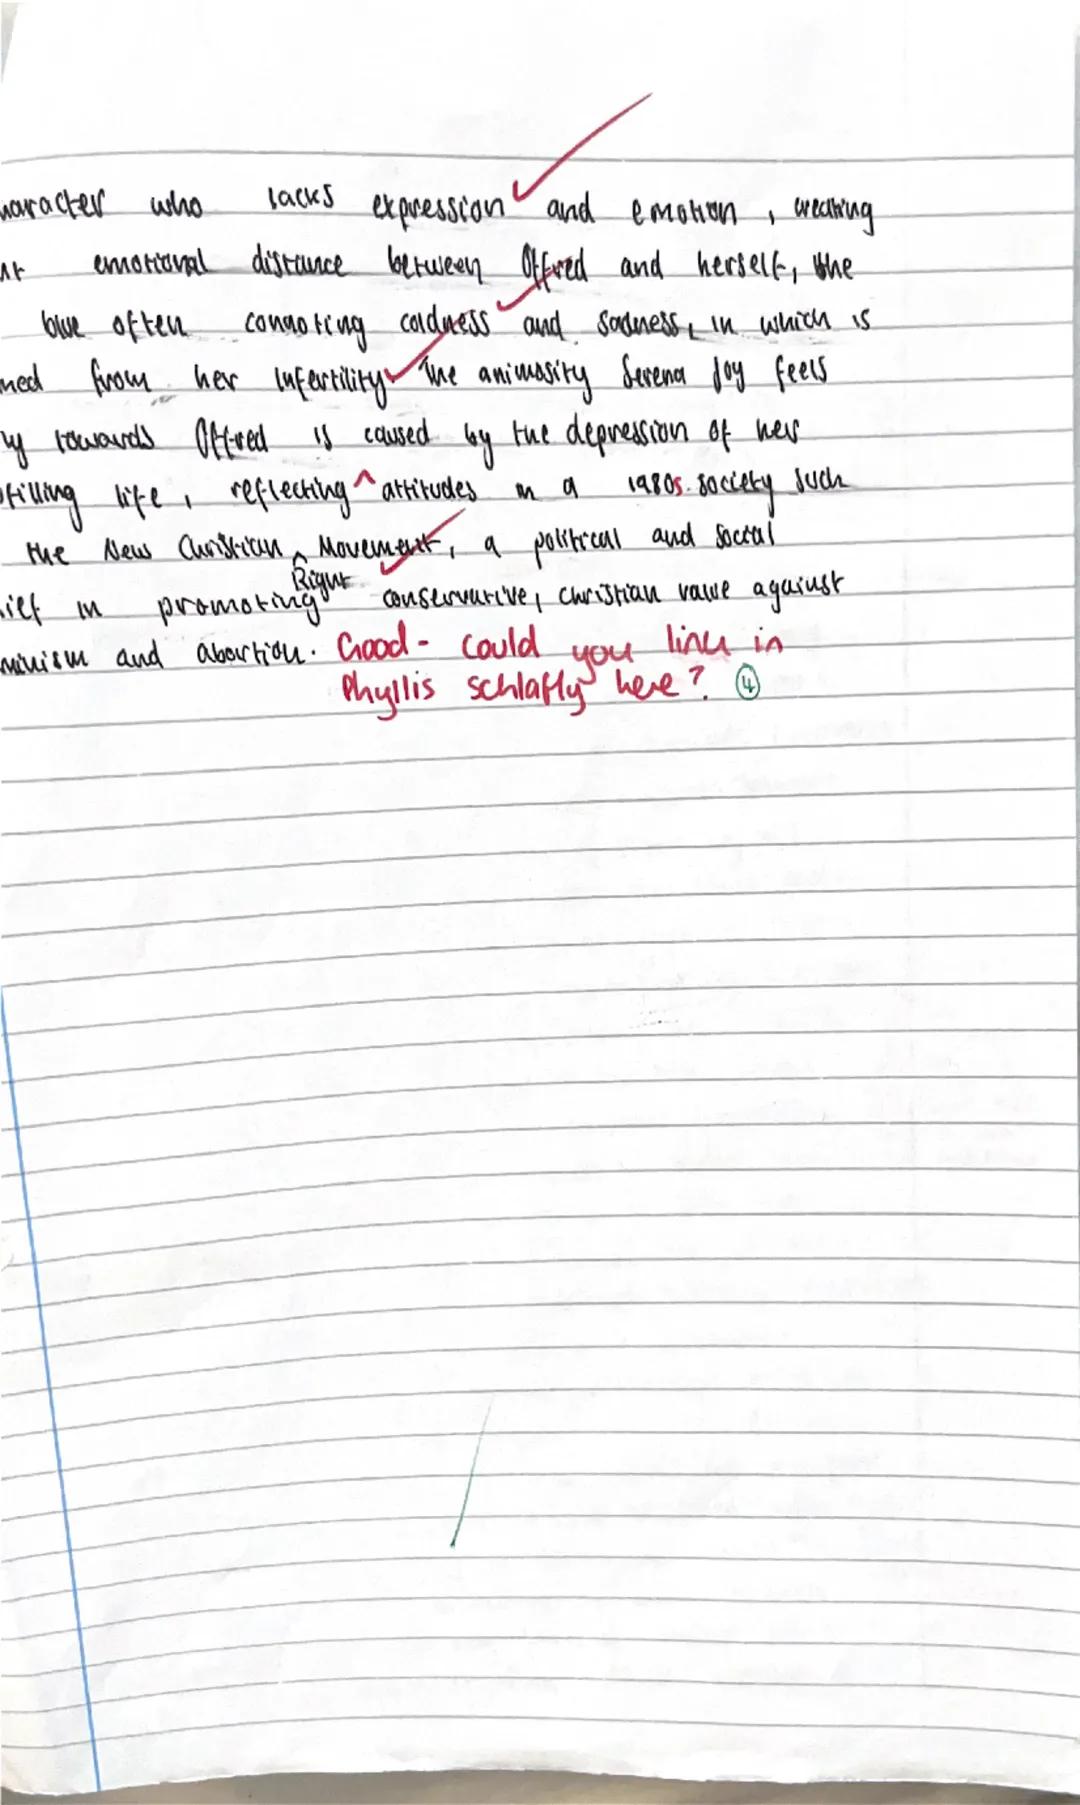 haracter who lacks expression and emotion, creating
emotional distance between Offred and herself, the
blue often connoting coldness and sadness, in which is
med from her infertility The animosity Serena Joy feels
ly towards Offred is caused by the depression of her
filling life, reflecting ^ attitudes in a 1980s society such
the New Christian ^ Movement, a political and social
Right
lief in promoting conservative, christian value against
minism and abortion. Good - could you link in
Phyllis schlafly here? ④